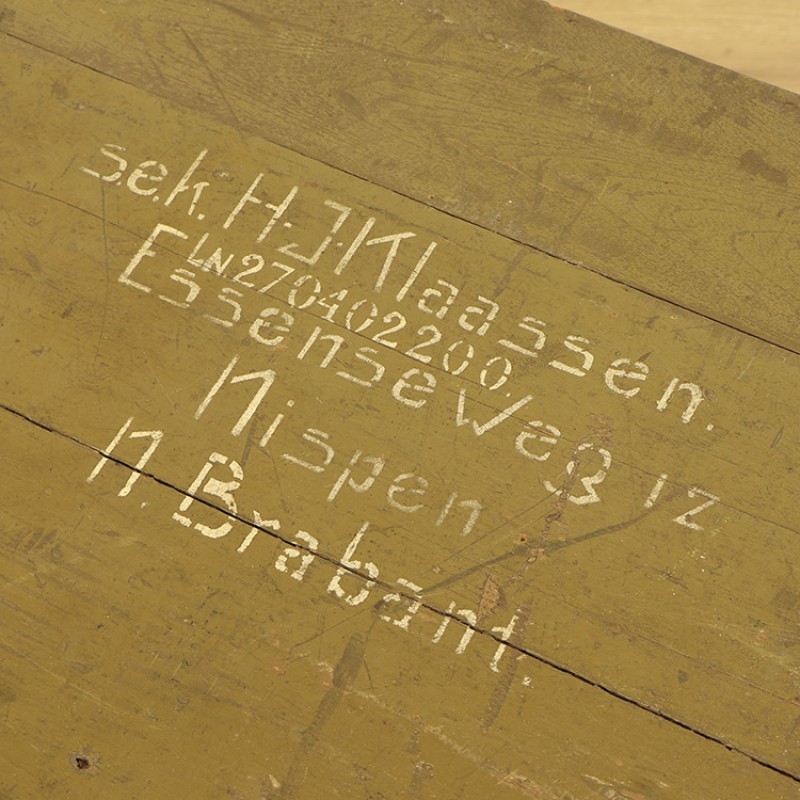 s.e.k. H.J. Klaassen.
LN 270402200.
Essenseweg 12
Nispen
N. Brabant.